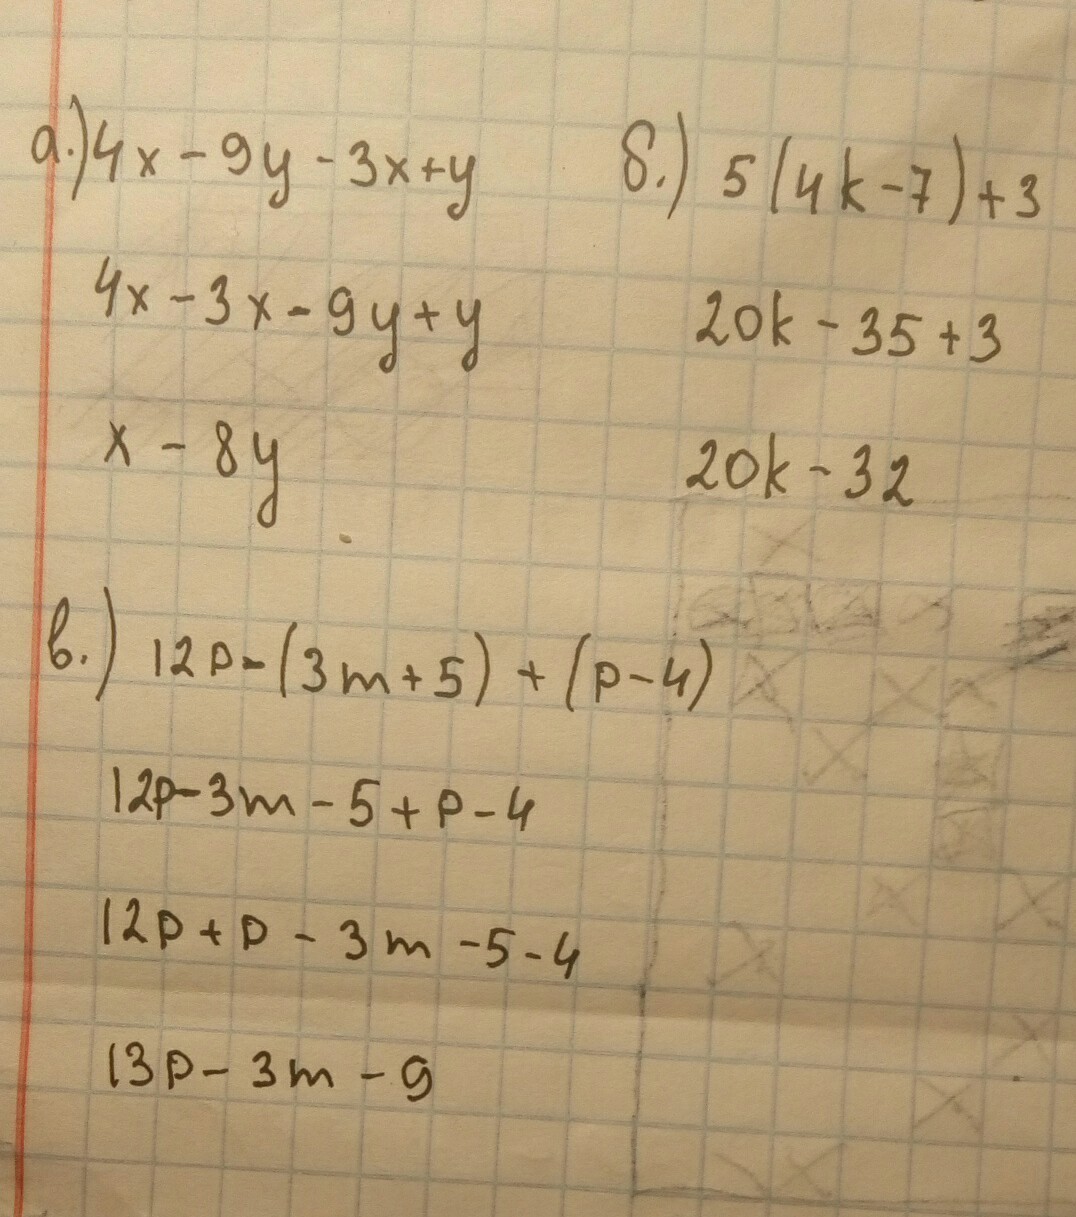 а.) 4x - 9y - 3x + y
4x - 3x - 9y + y
x - 8y
б.) 5(4k - 7) + 3
20k - 35 + 3
20k - 32
в.) 12p - (3m + 5) + (p - 4)
12p - 3m - 5 + p - 4
12p + p - 3m - 5 - 4
13p - 3m - 9